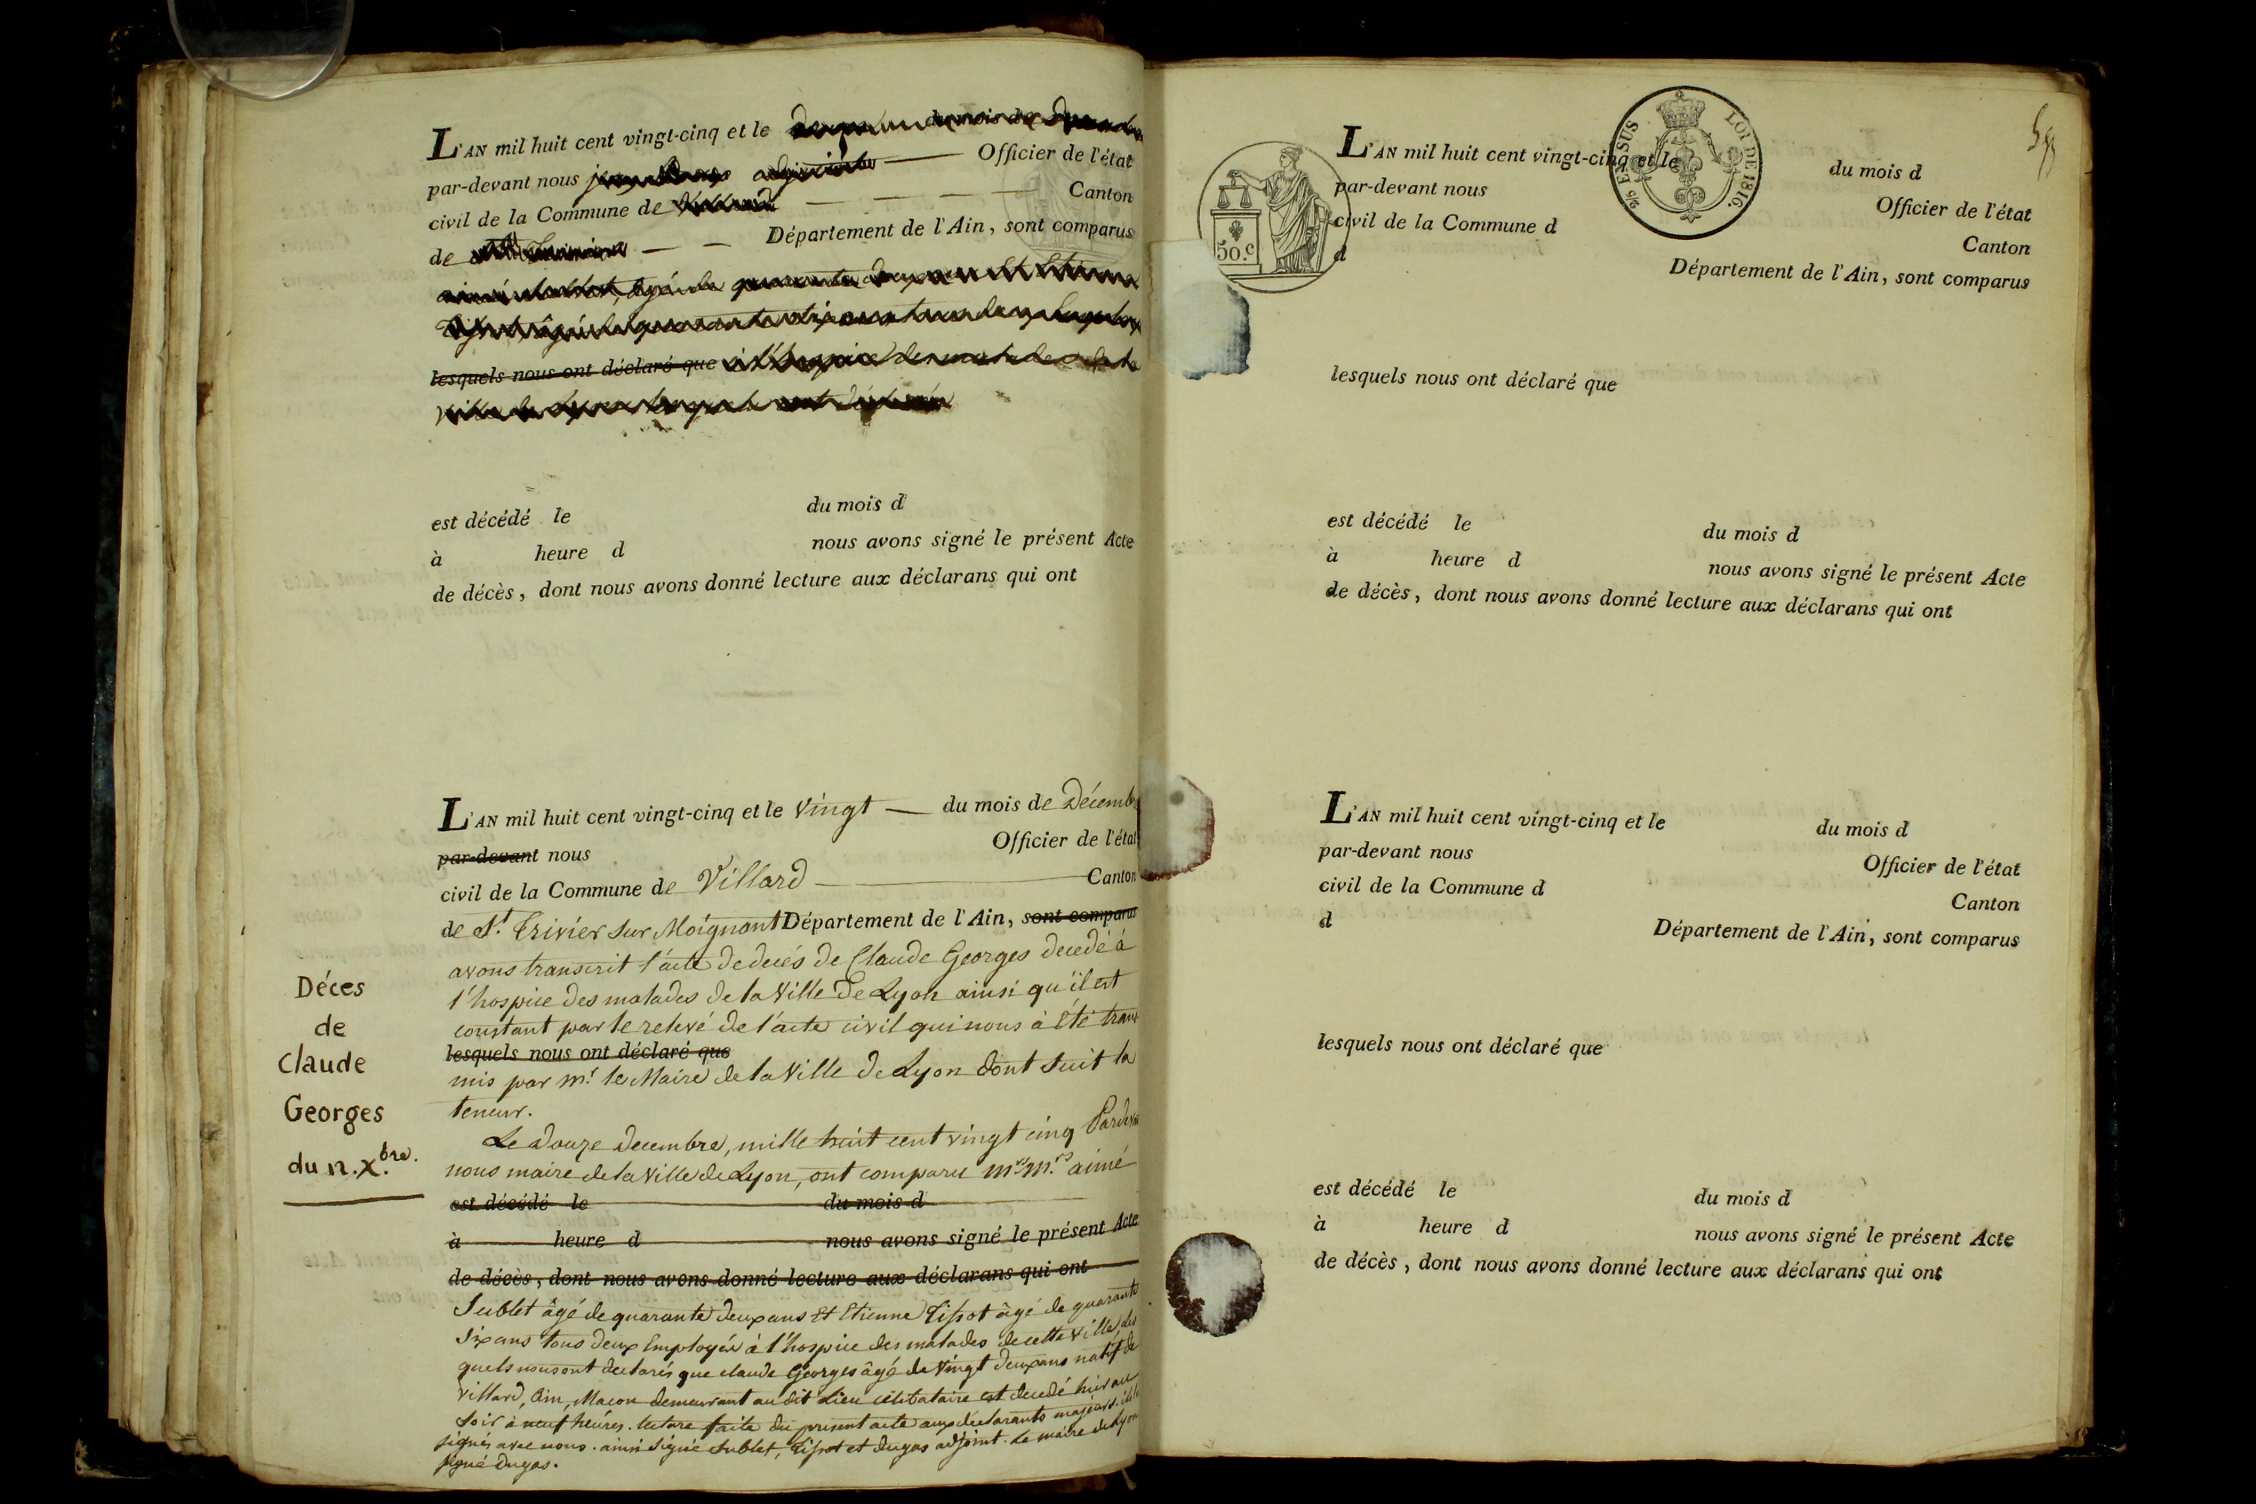 L'AN mil huit cent vingt-cinq et le
par-devant nous Officier de l'état
civil de la Commune de Canton
de Département de l'Ain, sont comparus
lesquels nous ont déclaré que
est décédé le du mois d
à heure d nous avons signé le présent Acte
de décès, dont nous avons donné lecture aux déclarans qui ont
Déces
de
Claude
Georges
du n. X.bre.
L'AN mil huit cent vingt-cinq et le vingt du mois de Décembre
par-devant nous Officier de l'état
civil de la Commune de Villard Canton
de St. Trivier sur Moignant Département de l'Ain, sont comparus
avons transcrit l'acte de decés de Claude Georges decedé à
l'hospice des malades de la Ville de Lyon ainsi qu'il est
constant par le relevé de l'acte civil qui nous à été trans
lesquels nous ont déclaré que
mis par mr. le Maire de la Ville de Lyon dont suit la
teneur.
Le douze decembre, mille huit cent vingt cinq Pardevant
nous maire de la Ville de Lyon, ont comparu aimé
est décédé le du mois d
à heure d nous avons signé le présent Acte
de décès, dont nous avons donné lecture aux déclarans qui ont
Sublet âgé de quarante deux ans et Etienne Tissot âgé de quarante
six ans tous deux Employés à l'hospice des malades de cette Ville, les
quels nous ont declarés que claude Georges âgé de vingt deux ans natif de
Villard, Ain, Macon demeurant au dit Lieu célibataire est decedé hier au
soir à neuf heures. lecture faite du present acte aux declarants majeurs. ils ont
signés avec nous. ainsi signé Sublet, Tissot et dugas adjoint. Le maire de Lyon
signé Dugas.
L'AN mil huit cent vingt-cinq et le du mois d
par-devant nous Officier de l'état
civil de la Commune d Canton
d Département de l'Ain, sont comparus
EN SUS
LOI DE 1816.
50.c
lesquels nous ont déclaré que
est décédé le du mois d
à heure d nous avons signé le présent Acte
de décès, dont nous avons donné lecture aux déclarans qui ont
L'AN mil huit cent vingt-cinq et le du mois d
par-devant nous Officier de l'état
civil de la Commune d Canton
d Département de l'Ain, sont comparus
lesquels nous ont déclaré que
est décédé le du mois d
à heure d nous avons signé le présent Acte
de décès, dont nous avons donné lecture aux déclarans qui ont